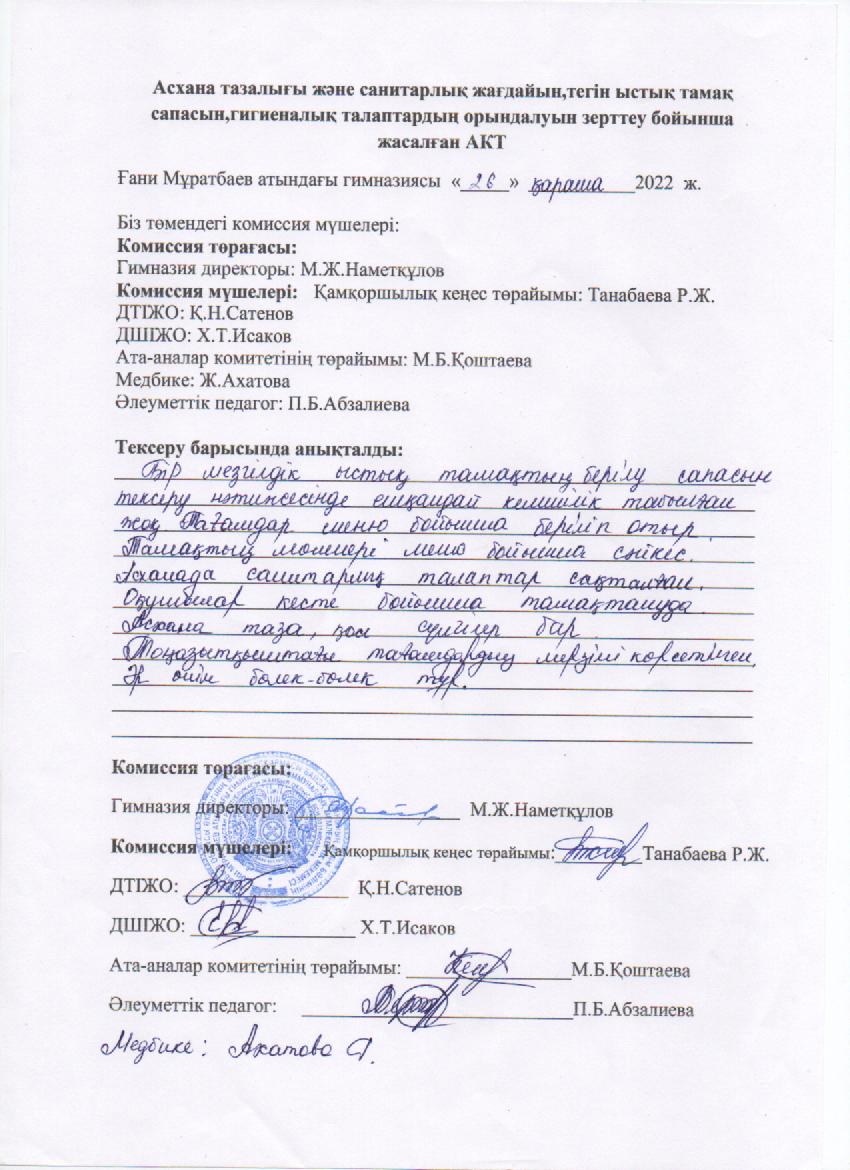 Асхана тазалығы және санитарлық жағдайын,тегін ыстық тамақ
сапасын,гигиеналық талаптардың орындалуын зерттеу бойынша
жасалған АКТ
Ғани Мұратбаев атындағы гимназиясы «_26_» қараша 2022 ж.
Біз төмендегі комиссия мүшелері:
Комиссия төрағасы:
Гимназия директоры: М.Ж.Наметқұлов
Комиссия мүшелері: Қамқоршылық кеңес төрайымы: Танабаева Р.Ж.
ДТІЖО: Қ.Н.Сатенов
ДШІЖО: Х.Т.Исаков
Ата-аналар комитетінің төрайымы: М.Б.Қоштаева
Медбике: Ж.Ахатова
Әлеуметтік педагог: П.Б.Абзалиева
Тексеру барысында анықталды:
Бір мезгілдік ыстық тамақтың берілу сапасын
тексеру нәтижесінде ешқандай кемшілік табылған
жоқ Тағамдар меню бойынша беріліп отыр.
Тамақтың мөлшері меню бойынша сәйкес.
Асханада санитарлық талаптар сақталған.
Оқушылар кесте бойынша тамақтануда.
Асхана таза, қол сүлгілер бар.
Тоңазытқыштағы тағамдардың мерзімі көрсетілген,
Әр өнім бөлек-бөлек тұр.
Комиссия төрағасы:
Гимназия директоры: М.Ж.Наметқұлов
Комиссия мүшелері: Қамқоршылық кеңес төрайымы: Танабаева Р.Ж.
ДТІЖО: Қ.Н.Сатенов
ДШІЖО: Х.Т.Исаков
Ата-аналар комитетінің төрайымы: М.Б.Қоштаева
Әлеуметтік педагог: П.Б.Абзалиева
Медбике: Ахатова